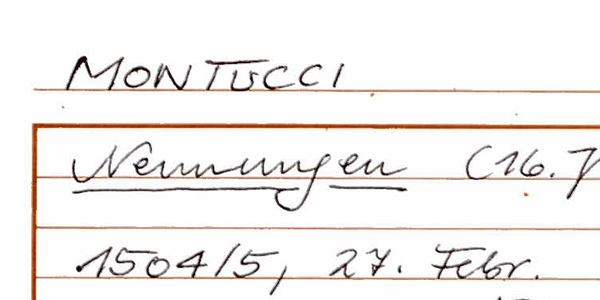 MONTUCCI
Nennungen (16.
1504/5, 27. Febr.